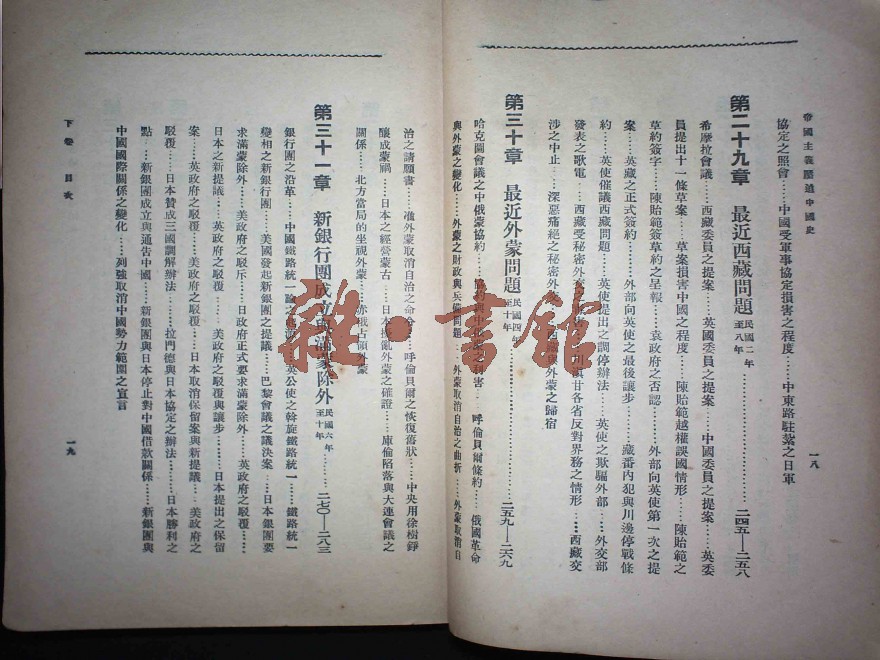 帝國主義壓迫中國史
一八
協定之照會……中國受軍事協定損害之程度……中東路駐紮之日軍
第二十九章 最近西藏問題 民國二年至八年 二四五—二五八
希摩拉會議……西藏委員之提案……英國委員之提案……中國委員之提案……英委
員提出十一條草案……草案損害中國之程度……陳貽範越權誤國情形……陳貽範之
草約簽字……陳貽範簽草約之呈報……袁政府之否認……外部向英使第一次之提
案……英藏之正式簽約……外部向英使之最後讓步……藏番內犯與川邊停戰條
約……英使催議西藏問題……英使提出之調停辦法……英使之欺騙外部……外交部
發表之歌電……西藏受秘密外交之 川滇甘各省反對界務之情形……西藏交
涉之中止……深惡痛絕之秘密外交……西藏與外蒙之歸宿
第三十章 最近外蒙問題 民國四年至十年 二五九—二六九
哈克圖會議之中俄蒙協約……協約與中俄蒙之利害……呼倫貝爾條約……俄國革命
與外蒙之變化……外蒙之財政與兵備問題……外蒙取消自治之曲折……外蒙取消自
治之請願書……准外蒙取消自治之命令……呼倫貝爾之恢復舊狀……中央用徐樹錚
釀成蒙禍……日本之經營蒙古……日本擾亂外蒙之確證……庫倫陷落與大連會議之
關係……北方當局的坐視外蒙……赤俄占領外蒙
第三十一章 新銀行團成立與滿蒙除外 民國六年至十年 二七〇—二八三
銀行團之沿革……中國鐵路統一論之起源……英公使之斡旋鐵路統一……鐵路統一
變相之新銀行團……美國發起新銀團之提議……巴黎會議之議決案……日本銀團要
求滿蒙除外……美政府之駁斥……日政府正式要求滿蒙除外……英政府之駁覆……
日本之新提議……英政府之駁覆……美政府之駁覆與讓步……日本提出之保留
案……英政府之駁覆……美政府之駁覆……日本取消保留案與新提議……美政府之
駁覆……日本贊成三國調解辦法……拉門德與日本協定之辦法……日本勝利之
點……新銀團成立與通告中國……新銀團與日本停止對中國借款關係……新銀團與
中國國際關係之變化……列強取消中國勢力範圍之宣言
下卷 目次
一九
雜·書館